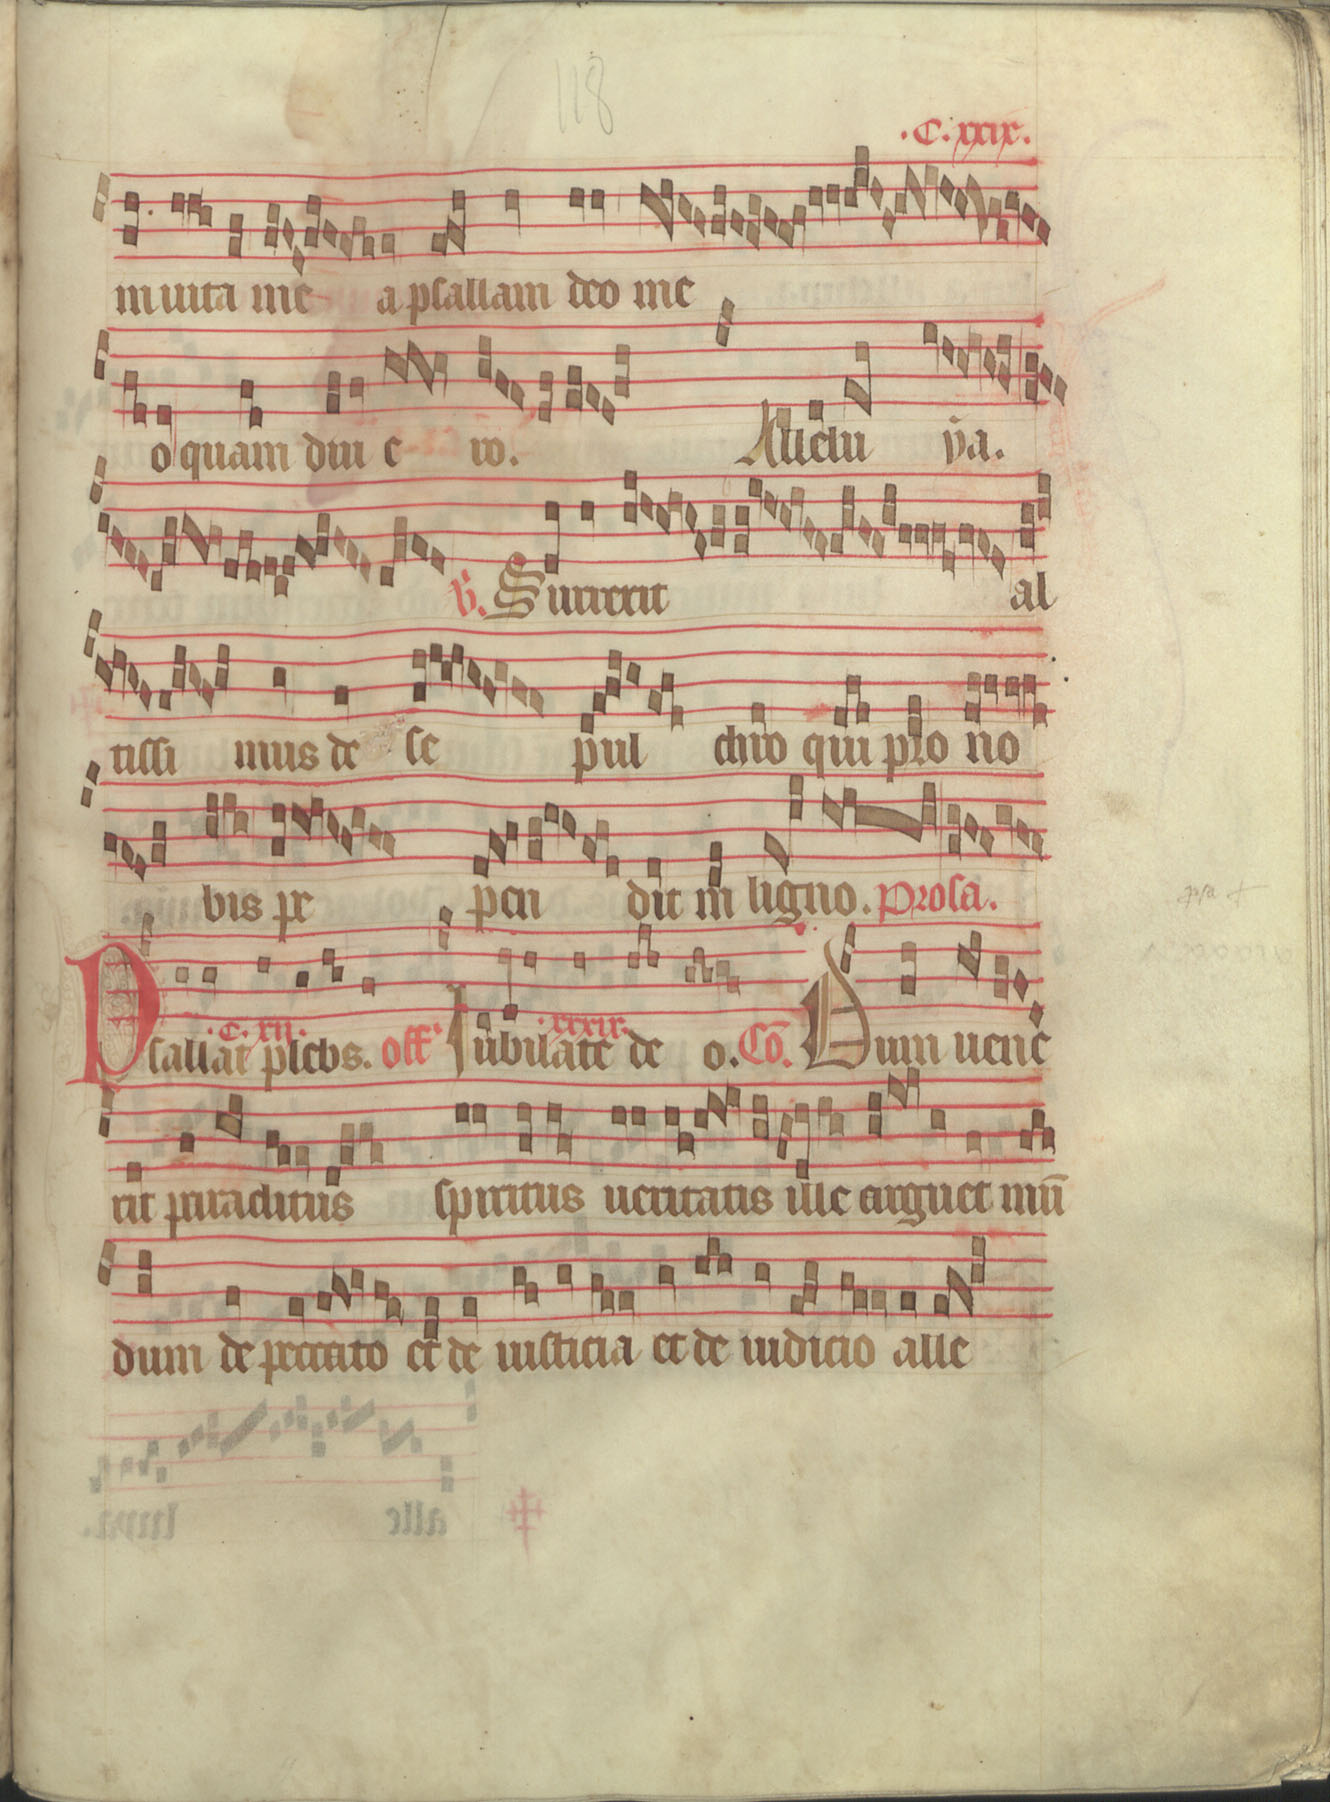 118
.C.xxix.
in uita me a psallam deo me
o quam diu e ro. Alleluya.
V. Surrexit al
tissi mus de se pul chro qui pro no
bis pe pen dit in ligno. Prosa.
.c.xii. .xxxix.
Psallat plebs. off' Iubilate de o. Cō. Dum uene
rit paraclitus spiritus ueritatis ille arguet mū
dum de peccato et de iusticia et de iudicio alle